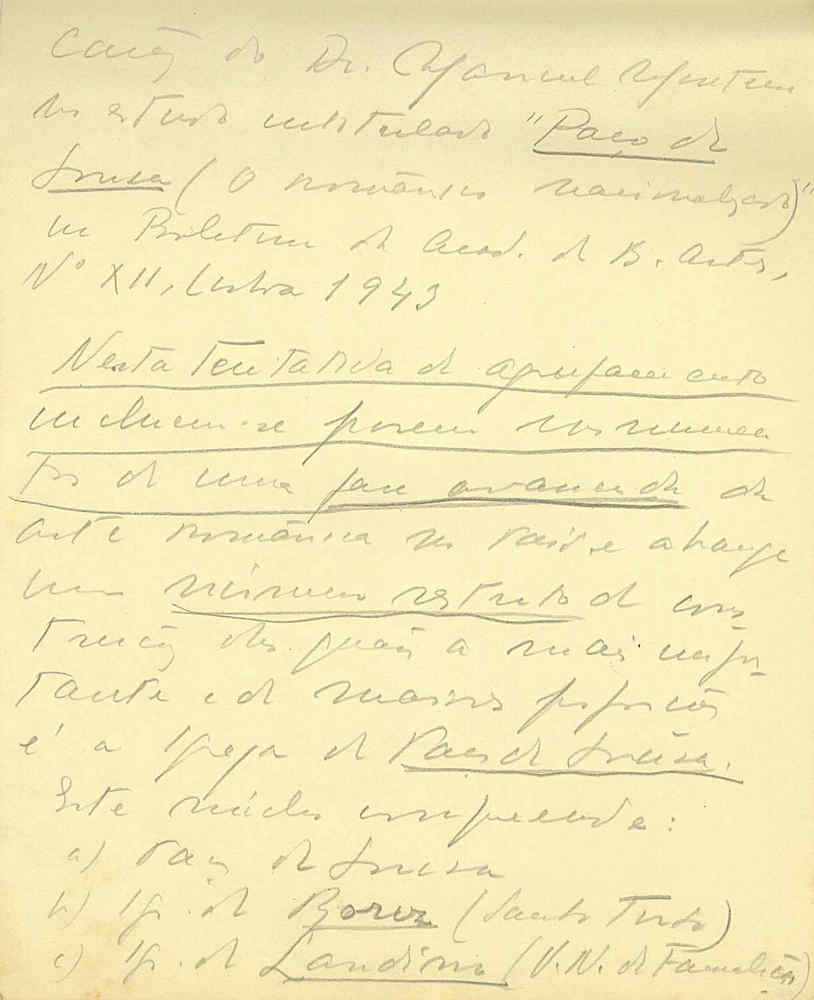 do Dr. Manuel Monteiro
no estudo intitulado "Paço de
Sousa (O românico nacionalizado)"
in Boletim da Acad. de B. Artes,
Nº XII, Lisboa 1943
Nesta tentativa de agrupamento
incluem-se porem os
de uma fase avançada da
arte românica no Pais, e abrange
um número restrito de cons-
truções das quais a mais impor-
tante e de maiores proporções
é a Igreja de Paço de Sousa.
Este núcleo compreende:
a) Paço de Sousa
b) Ig. de Roriz (Santo Tirso)
c) Ig. de Landim (V. N. de Famalicão)